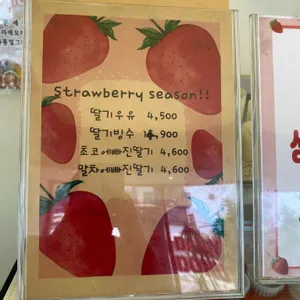 Strawberry season!!
딸기우유 4,500
딸기빙수 14,900
초코에빠진딸기 4,600
말차에빠진딸기 4,600